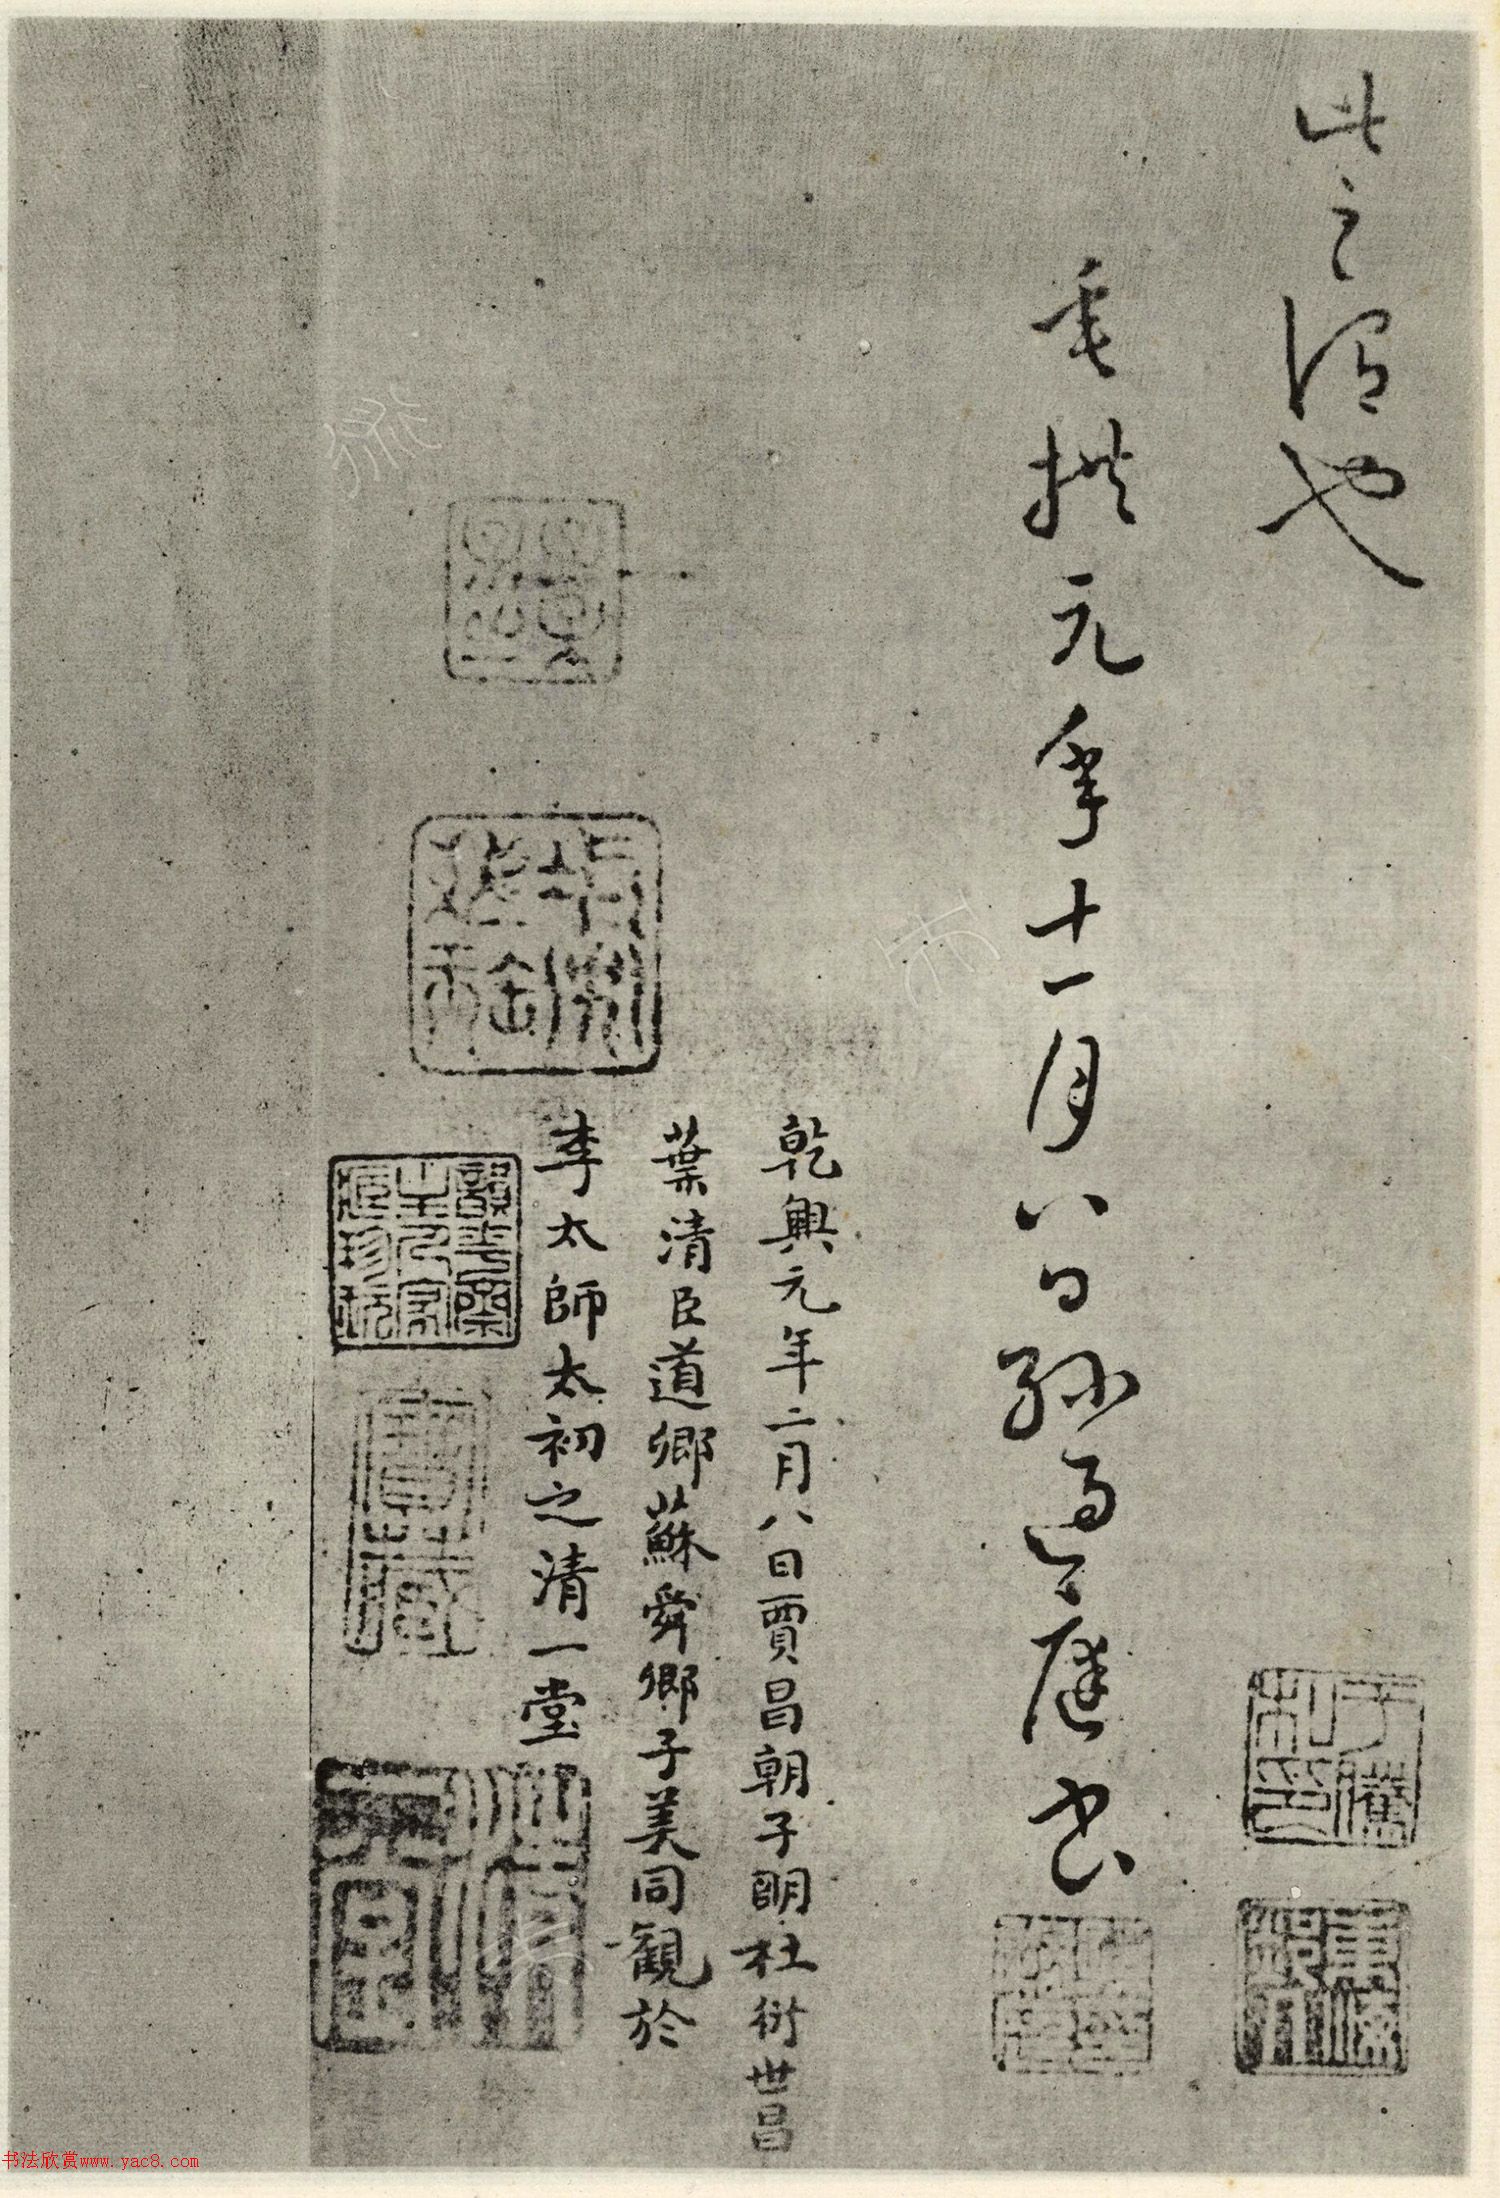 此之謂也
垂拱元年十一月八日孫過庭書
乾興元年二月八日賈昌朝子明杜衍世昌
葉清臣道卿蘇舜卿子美同觀於
李太師太初之清一堂
于騰
私印
書藏
书法欣赏www.yac8.com